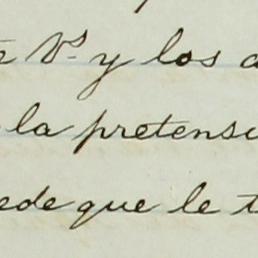 Vs. y los
la pretensi
ede que le t